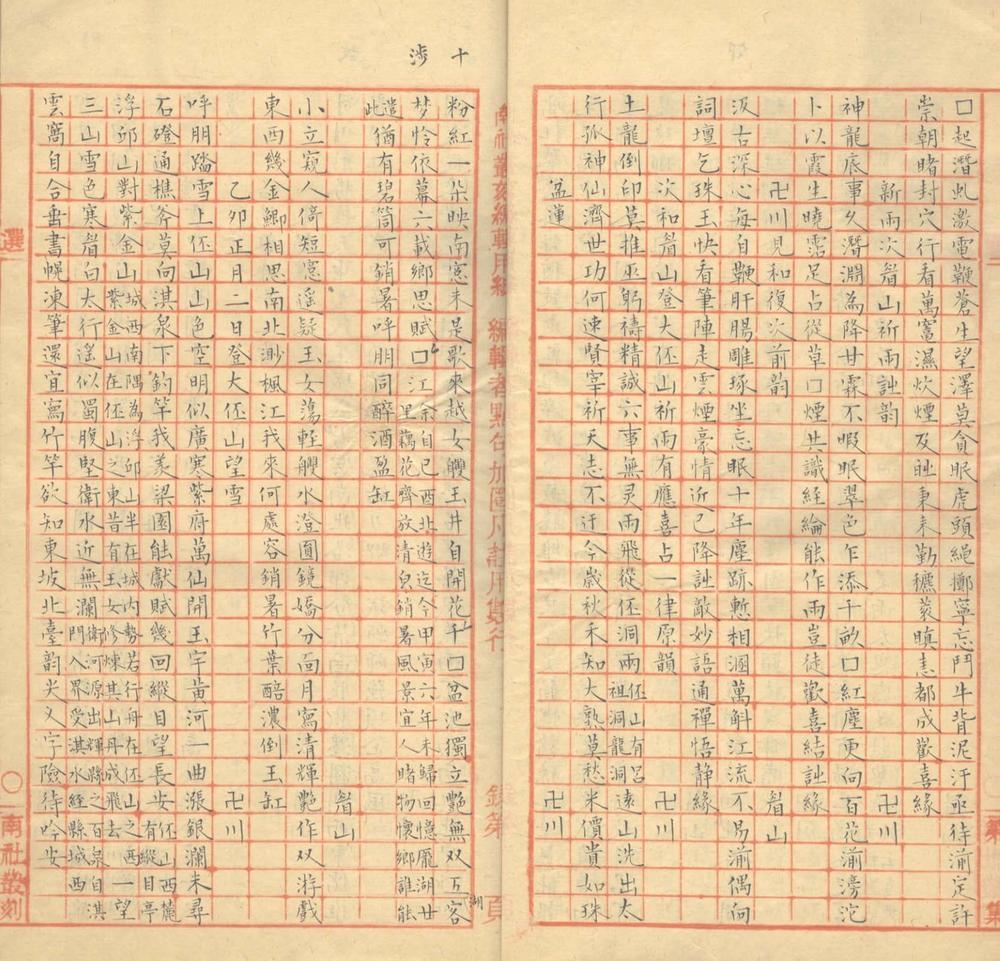 口起潛虬激電鞭蒼生望澤莫貪眠虎頭繩擲寧忘鬥牛背泥汙亟待湔定許
崇朝賭封穴行看萬竈濕炊煙及時東耒勤穮蓘瞋恚都成歡喜緣
新雨次眉山祈雨詶韵 卍川
神龍底事久潛淵為降甘霖不暇眠翠色乍添千畝口紅塵更向百花湔滂沱
卜以霞生曉霑足占從草口煙共識經綸能作雨豈徒歡喜結詶緣
卍川見和復次前韵 眉山
汲古深心每自鞭肝腸雕琢坐忘眠十年塵跡慙相溷萬斛江流不易湔偶向
詞壇乞珠玉快看筆陣走雲煙豪情近已降詶敵妙語通禪悟静緣
次和眉山登大伾山祈雨有應喜占一律原韻 卍川
土龍倒印莫推巫躬禱精誠六事無灵雨飛從伾洞兩伾山有呂祖洞龍洞遠山洗出太
行孤神仙濟世功何速賢宰祈天志不迂今歲秋禾知大熟莫愁米價貴如珠
盆蓮 卍川
十
涉
粉紅一朵映南窻未是歌來越女艭玉井自開花千口盆池獨立艷無双互客
梦怜依幕六載鄉思賦口江余自己酉北遊迄今甲寅六年未歸回憶鴛湖廿里藕花齊放清白銷暑風景宜人睹物懷鄉誰能
湖
遣此猶有碧筒可銷暑呼朋同醉酒盈缸
小立窺人倚短窻遥疑玉女蕩軽艭水澄圓鏡嬌分面月寫清輝艷作双游戲
東西幾金鯽相思南北渺楓江我來何處容銷暑竹葉醅濃倒玉缸
乙夘正月二日登大伾山望雪 眉山
呼朋踏雪上伾山山色空明似廣寒紫府萬仙開玉宇黃河一曲漲銀瀾未尋
石磴通樵客莫向淇泉下釣竿我羡梁園能獻賦幾回縱目望長安伾山西麓有縱目亭
浮邱山對紫金山城西南隅為浮邱山半在城內勢若行舟在伾山之西一望紫金山在伾山之東昔有王女修煉其山丹成飛去
三山雪色寒眉白太行遥似蜀腹堅衛水近無瀾衛河源出輝縣之百泉自淇門入界受淇水經縣城西
雲窩自合垂書幌凍筆還宜寫竹竿欲知東坡北臺韵尖乂字險待吟安
選
南社叢刻
南社叢刻編輯用紙 編輯者點句加圈凡註用雙行
錄第 頁
第 集